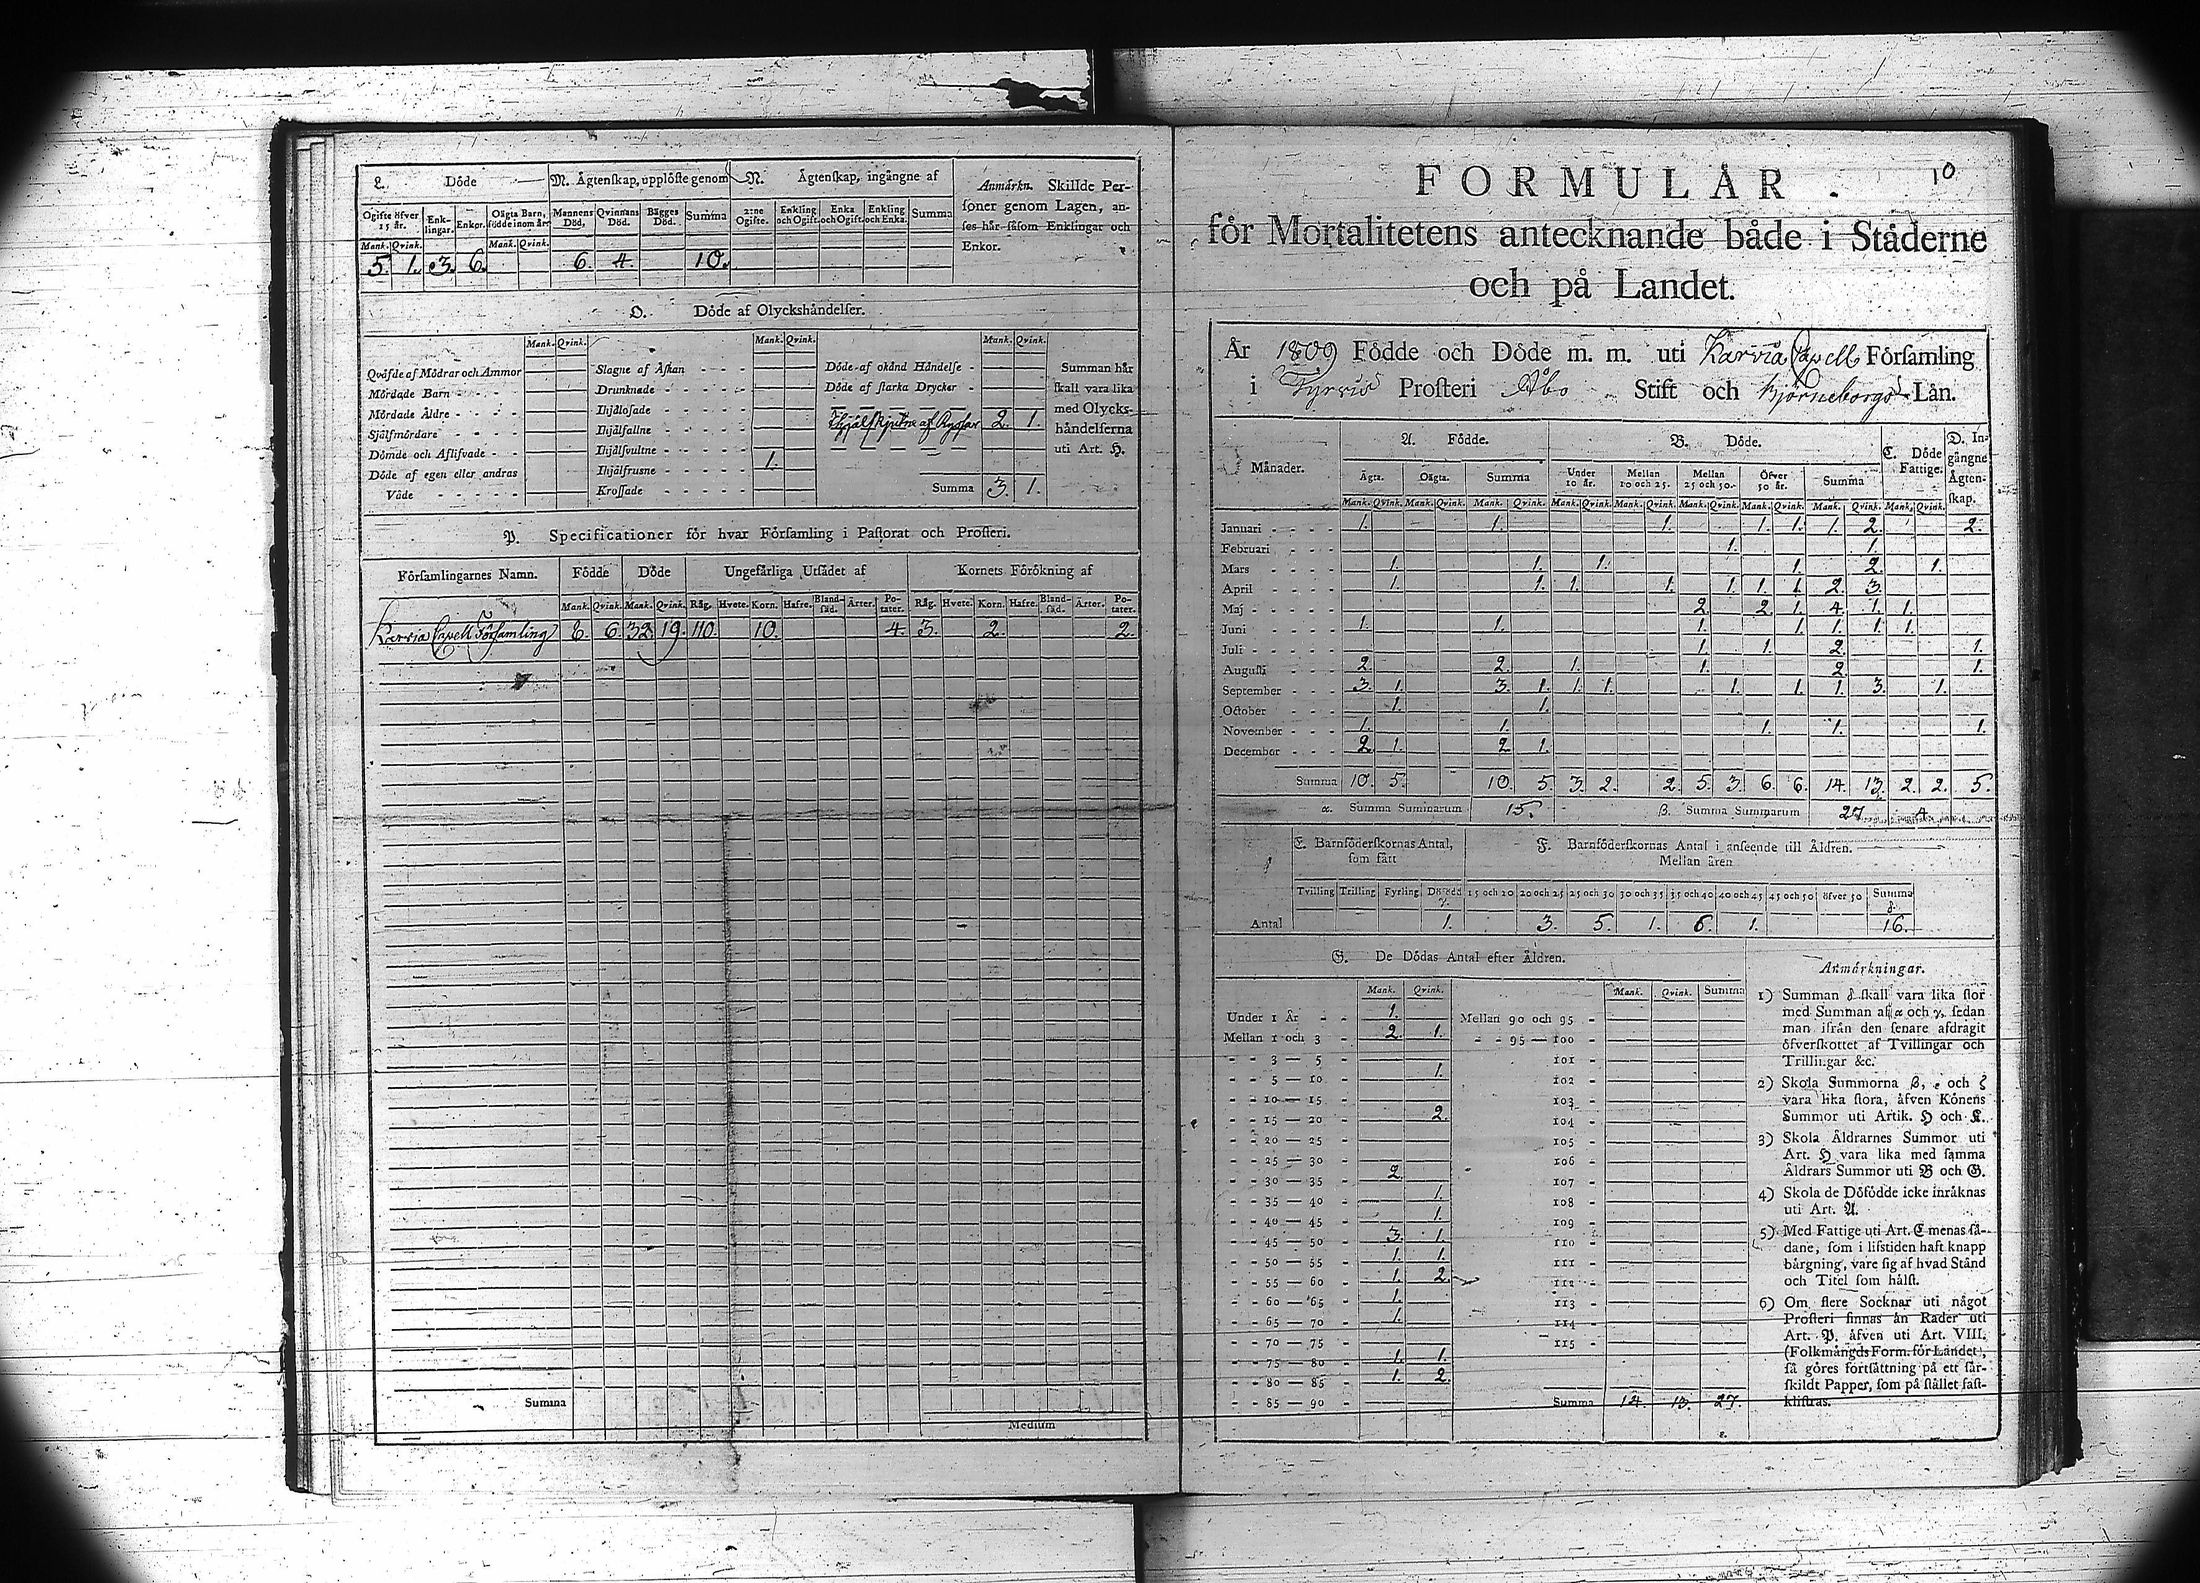 L. Döde
M. Ägtenskap, upplöste genom
N. Ägtenskap, ingångne af
Anmärkn. Skillde Per-
soner genom Lagen, an-
ses här såsom Enklingar och
Enkor.
Ogifte öfver 15 år. Enk-lingar. Enkor. Oägta Barn, födde inom året Mannens Död, Qvinnans Död. Bägges Död. Summa 2:ne Ogifte. Enkling och Ogift. Enka och Ogift. Enkling och Enka. Summa
Mank. Qvink. Mank. Qvink.
5. 1. 3. 6. 6. 4. 10.
O. Döde af Olyckshändelser.
Mank. Qvink. Mank. Qvink. Mank. Qvink.
Qväfde af Mödrar och Ammor
Mördade Barn
Mördade Äldre
Självmördare
Dömde och Aflifvade
Döde af egen eller andras
Våde
Slagne af Åskan
Drunknade
Ihjälosade
Ihjälfallne
Ihjälsvultne
Ihjälfrusne 1.
Krossade
Döde af okänd Händelse
Döde af starka Drycker
Ihjälskjutne af Ryssar 2. 1.
Summa 3. 1.
Summan här
skall vara lika
med Olycks-
händelserna
uti Art. H.
P. Specificationer för hvar Församling i Pastorat och Prosteri.
Församlingarnes Namn. Födde Döde Ungefärliga Utsädet af Kornets Förökning af
Mank. Qvink. Mank. Qvink. Råg. Hvete. Korn. Hafre. Bland-säd. Ärter. Po-tater. Råg. Hvete. Korn. Hafre. Bland-säd. Ärter. Po-tater.
Karvia Capell Församling 8. 6. 32. 19. 110. 10. 4. 3. 2. 2.
Summa
Medium
10
FORMULÄR
för Mortalitetens antecknande både i Städerne
och på Landet.
År 1809 Födde och Döde m. m. uti Karvia Capell Församling
i Tyrvis Prosteri Åbo Stift och Björneborgs Län.
Månader. A. Födde. B. Döde. C. Döde Fattige. D. In-gångne Ägten-skap.
Ägta. Oägta. Summa Under 10 år. Mellan 10 och 25. Mellan 25 och 50. Öfver 50 år. Summa
Mank. Qvink. Mank. Qvink. Mank. Qvink. Mank. Qvink. Mank. Qvink. Mank. Qvink. Mank. Qvink. Mank. Qvink. Mank. Qvink.
Januari 1. 1. 1. 1. 1. 1. 2. 2.
Februari 1. 1.
Mars 1. 1. 1. 1. 2. 1.
April 1. 1. 1. 1. 1. 1. 1. 2. 3.
Maj 2. 2. 1. 4. 1. 1.
Juni 1. 1. 1. 1. 1. 1. 1.
Juli 1. 1. 2. 1.
Augusti 2. 2. 1. 1. 2. 1.
September 3. 1. 3. 1. 1. 1. 1. 1. 1. 3. 1.
October 1. 1.
November 1. 1. 1. 1. 1.
December 2. 1. 2. 1.
Summa 10. 5. 10. 5. 3. 2. 2. 5. 3. 6. 6. 14. 13. 2. 2. 5.
α. Summa Summarum 15. β. Summa Summarum 27. 4.
E. Barnföderskornas Antal,
som fått
F. Barnföderskornas Antal i anseende till Åldren.
Mellan åren
Tvilling Trilling Fyrling Dödfödd γ. 15 och 20 20 och 25 25 och 30 30 och 35 35 och 40 40 och 45 45 och 50 öfver 50 Summa δ.
Antal 1. 3. 5. 1. 6. 1. 16.
G. De Dödas Antal efter Åldren.
Mank. Qvink. Mank. Qvink. Summa
Under 1 År 1. Mellan 90 och 95
Mellan 1 och 3 2. 1. 95 — 100
3 — 5 101
5 — 10 1. 102
10 — 15 103
15 — 20 2. 104
20 — 25 105
25 — 30 106
30 — 35 2. 107
35 — 40 1. 108
40 — 45 1. 109
45 — 50 3. 1. 110
50 — 55 1. 1. 111
55 — 60 1. 2. 112
60 — 65 1. 113
65 — 70 1. 114
70 — 75 115
75 — 80 1. 1.
80 — 85 1. 2.
85 — 90 Summa 14. 13. 27.
ε.
Anmärkningar.
1) Summan δ skall vara lika stor
med Summan af α och γ, sedan
man ifrån den senare afdragit
öfverskottet af Tvillingar och
Trillingar &c.
2) Skola Summorna β, ε och ζ
vara lika stora, äfven Könens
Summor uti Artik. H och K.
3) Skola Åldrarnes Summor uti
Art. H vara lika med samma
Åldrars Summor uti B och G.
4) Skola de Döfödde icke inräknas
uti Art. A.
5) Med Fattige uti Art. C menas så-
dane, som i lifstiden haft knapp
bärgning, vare sig af hvad Stånd
och Titel som hälst.
6) Om flere Socknar uti något
Prosteri finnas än Rader uti
Art. P. äfven uti Art. VIII.
(Folkmängds Form. för Landet),
så göres fortsättning på ett sär-
skildt Papper, som på stället fast-
klistras.